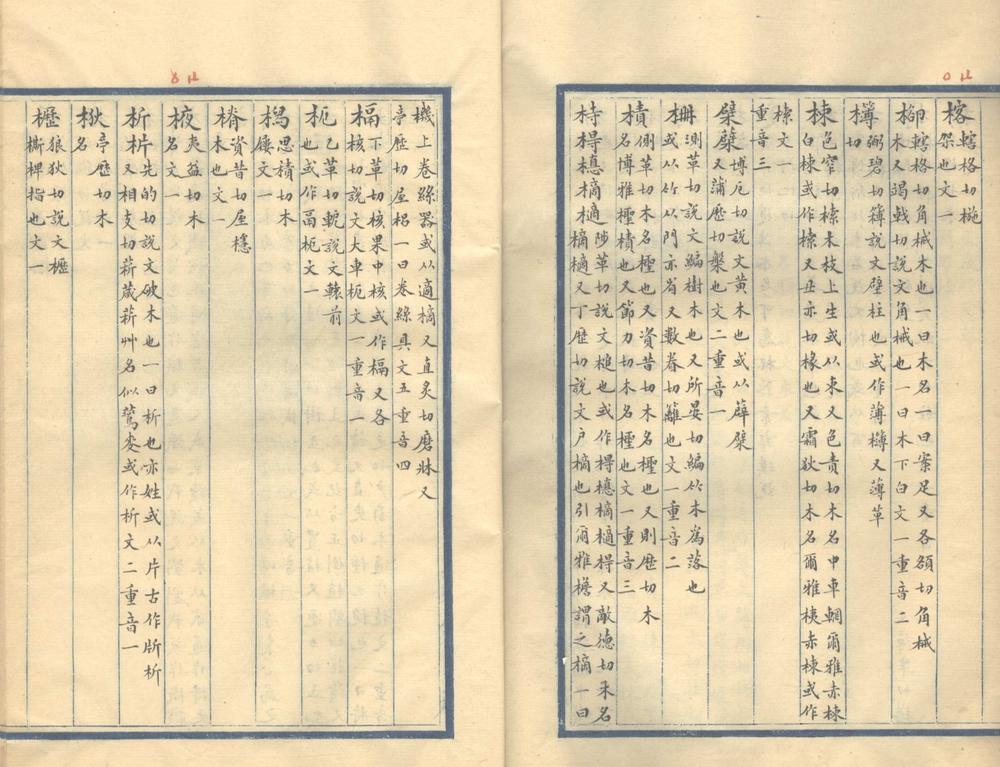 轄格切
㮄也文一
㭲轄格切角械木也一曰木名一曰案足又各頟切角械
木又竭戟切說文角械也一曰木下白文一重音二
欂弼碧切欂說文壁柱也或作薄欂又薄革
切
栜色窄切木枝上生或以束又色責切木名中車輞爾雅赤栜
白栜或作又丑亦切椽也又霜狄切木名爾雅桋赤栜或作
文一
重音三
檗檗博厄切說文黃木也或从薜檗
又蒲歷切槃也文二重音一
柵測革切說文編樹木也又所晏切編竹木為落也
或以从竹以門亦省又數眷切籬也文一重音二
樍側革切木名檉也又資昔切木名檉也又則歷切木
名博雅檉樍也又節力切木名檉也文一重音三
棏樀陟革切說文槌也或作棏樀棏又敵德切木名
樀又丁歷切說文戶樀也引爾雅檐謂之樀一曰
機上卷絲器或从適樀又直炙切磨牀又
亭歷切屋梠一曰卷絲具文五重音四
槅下革切核果中核或作槅又各
核切說文大車枙文一重音
枙乙革切軶說文轅前
也或作鬲枙文一
思積切木
屨文一
資昔切屋檼
木也文一
棭夷益切木
名文一
析片先的切說文破木也一曰析也亦姓或从片古作斨析
又相支切薪葴薪艸名似鶩麥或作析文二重音一
梑亭歷切木
名
櫪狼狄切說文櫪
㯕椑指也文一